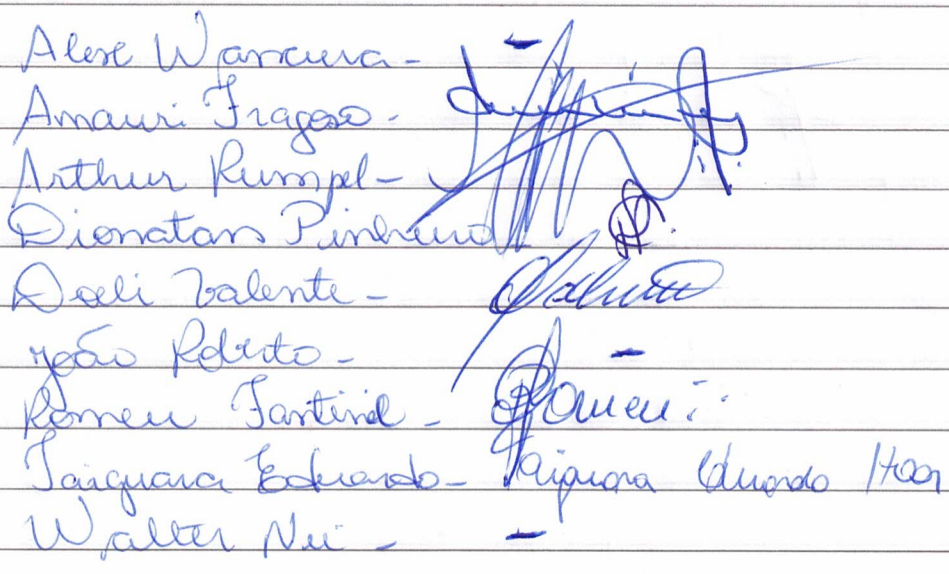 Alex Warrcura - -
Amauri Fragoso -
Arthur Rumpel -
Dionatan Pinheiro
Doeli Valente -
João Roberto - -
Romeu Fantinel - Romeu
Taiguara Eduardo - Taiguara Eduardo
Walter Nei - -